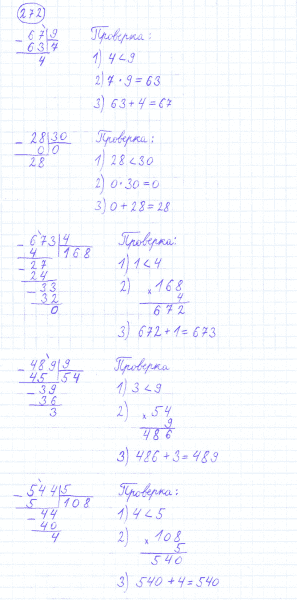 272
- 67 | 9
63 | 7
4
Проверка:
1) 4 < 9
2) 7 · 9 = 63
3) 63 + 4 = 67
- 28 | 30
0 | 0
28
Проверка:
1) 28 < 30
2) 0 · 30 = 0
3) 0 + 28 = 28
- 673 | 4
4 | 168
- 27
24
- 33
32
0
Проверка:
1) 1 < 4
2) × 168
4
672
3) 672 + 1 = 673
- 489 | 9
45 | 54
- 39
36
3
Проверка
1) 3 < 9
2) × 54
9
486
3) 486 + 3 = 489
- 544 | 5
5 | 108
- 44
40
4
Проверка:
1) 4 < 5
2) × 108
5
540
3) 540 + 4 = 540